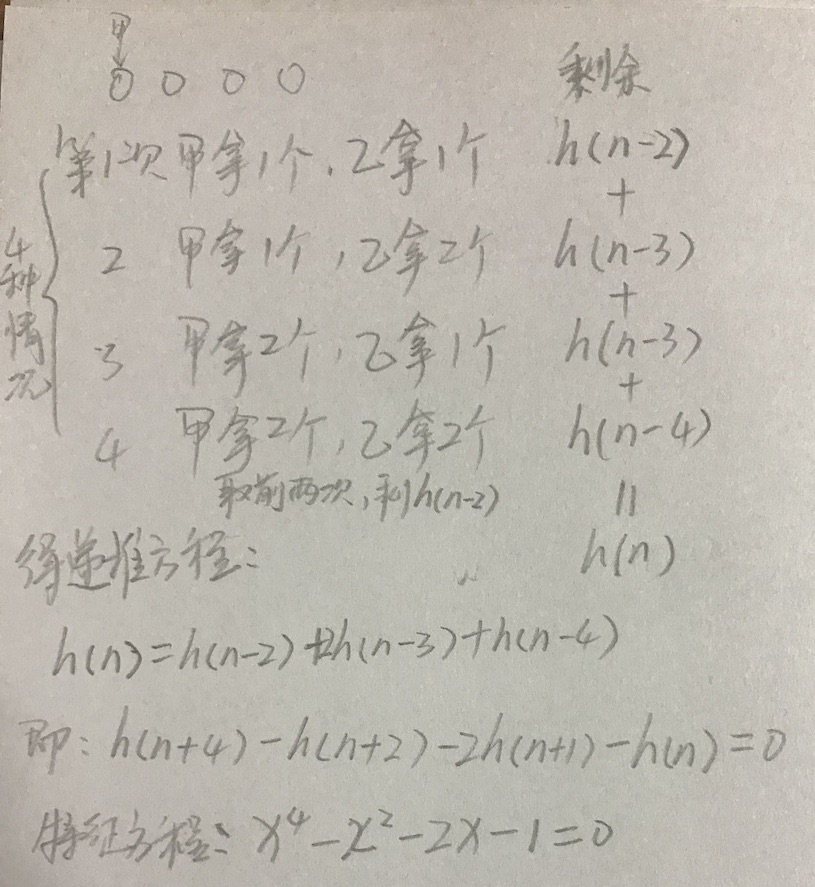 甲
↓
0 0 0 0 剩余
第1次 甲拿1个,乙拿1个 h(n-2)
+
2 甲拿1个,乙拿2个 h(n-3)
+
4种情况
3 甲拿2个,乙拿1个 h(n-3)
+
4 甲拿2个,乙拿2个 h(n-4)
取前两次,剩h(n-2) 11
得递推方程: h(n)
h(n)=h(n-2)+2h(n-3)+h(n-4)
即: h(n+4)-h(n+2)-2h(n+1)-h(n)=0
特征方程: x⁴-x²-2x-1=0